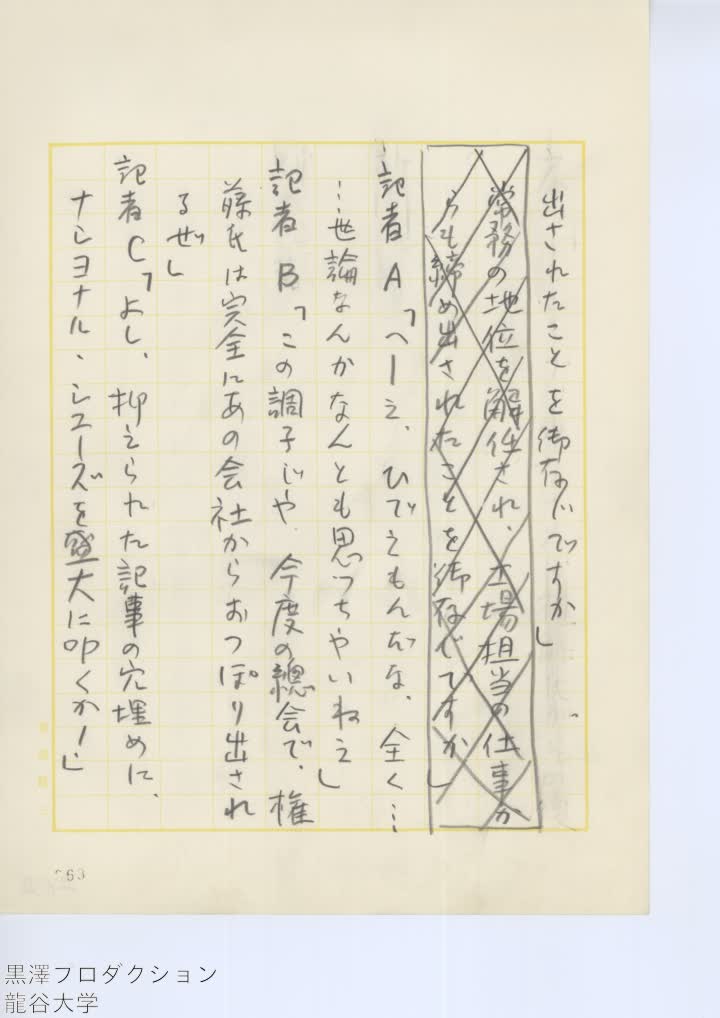 出されたことを御存じですか」
常務の地位を解任され、工場担当の仕事か
らも締め出されたことを御存じですか」
記者A「へーえ、ひでえもんだな、全く…
…世論なんかなんとも思っちやいねえ」
記者B「この調子じや、今度の總会で、権
藤氏は完全にあの会社からおつぽり出され
るぜ」
記者C「よし、抑えられた記事の穴埋めに、
ナショナル・シューズを盛大に叩くか！」
263
黒澤プロダクション
龍谷大学